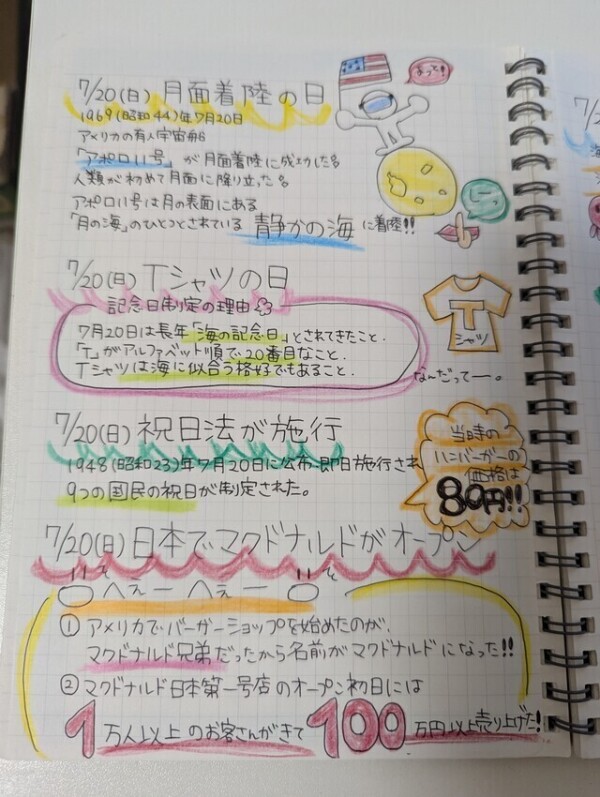 7/20(日) 月面着陸の日
1969(昭和44)年7月20日
アメリカの有人宇宙船
「アポロ11号」が月面着陸に成功した
人類が初めて月面に降り立った
アポロ11号は月の表面にある
「月の海」のひとつとされている 静かの海 に着陸!!
7/20(日) Tシャツの日
記念日制定の理由
7月20日は長年「海の記念日」とされてきたこと.
「T」がアルファベット順で20番目なこと.
Tシャツは海に似合う格好でもあること.
T
シャツ
なんだってー。
7/20(日) 祝日法が施行
1948(昭和23)年7月20日に公布・即日施行され
9つの国民の祝日が制定された。
当時の
ハンバーガーの
価格は
80円!!
7/20(日) 日本でマクドナルドがオープン
へぇー へぇー
① アメリカでバーガーショップを始めたのが、
マクドナルド兄弟だったから名前がマクドナルドになった!!
② マクドナルド日本第一号店のオープン初日には
1万人以上のお客さんがきて 100万円以上売り上げた!